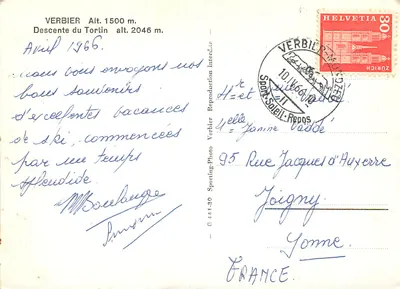 VERBIER Alt. 1500 m.
Descente du Tortin alt. 2046 m.
Avril 1966.
nous vous envoyons nos
bons souvenirs
d'excellentes vacances
de ski, commencées
par un temps
splendide
MBoulanger
Sporting-Photo Verbier Reproduction interdite
VERBIER
10.IV.66
Sport-Soleil-Repos
HELVETIA
80
ZÜRICH
Mr et
Melle Janine
95 Rue Jacques d'Auxerre
Joigny
Yonne
FRANCE.